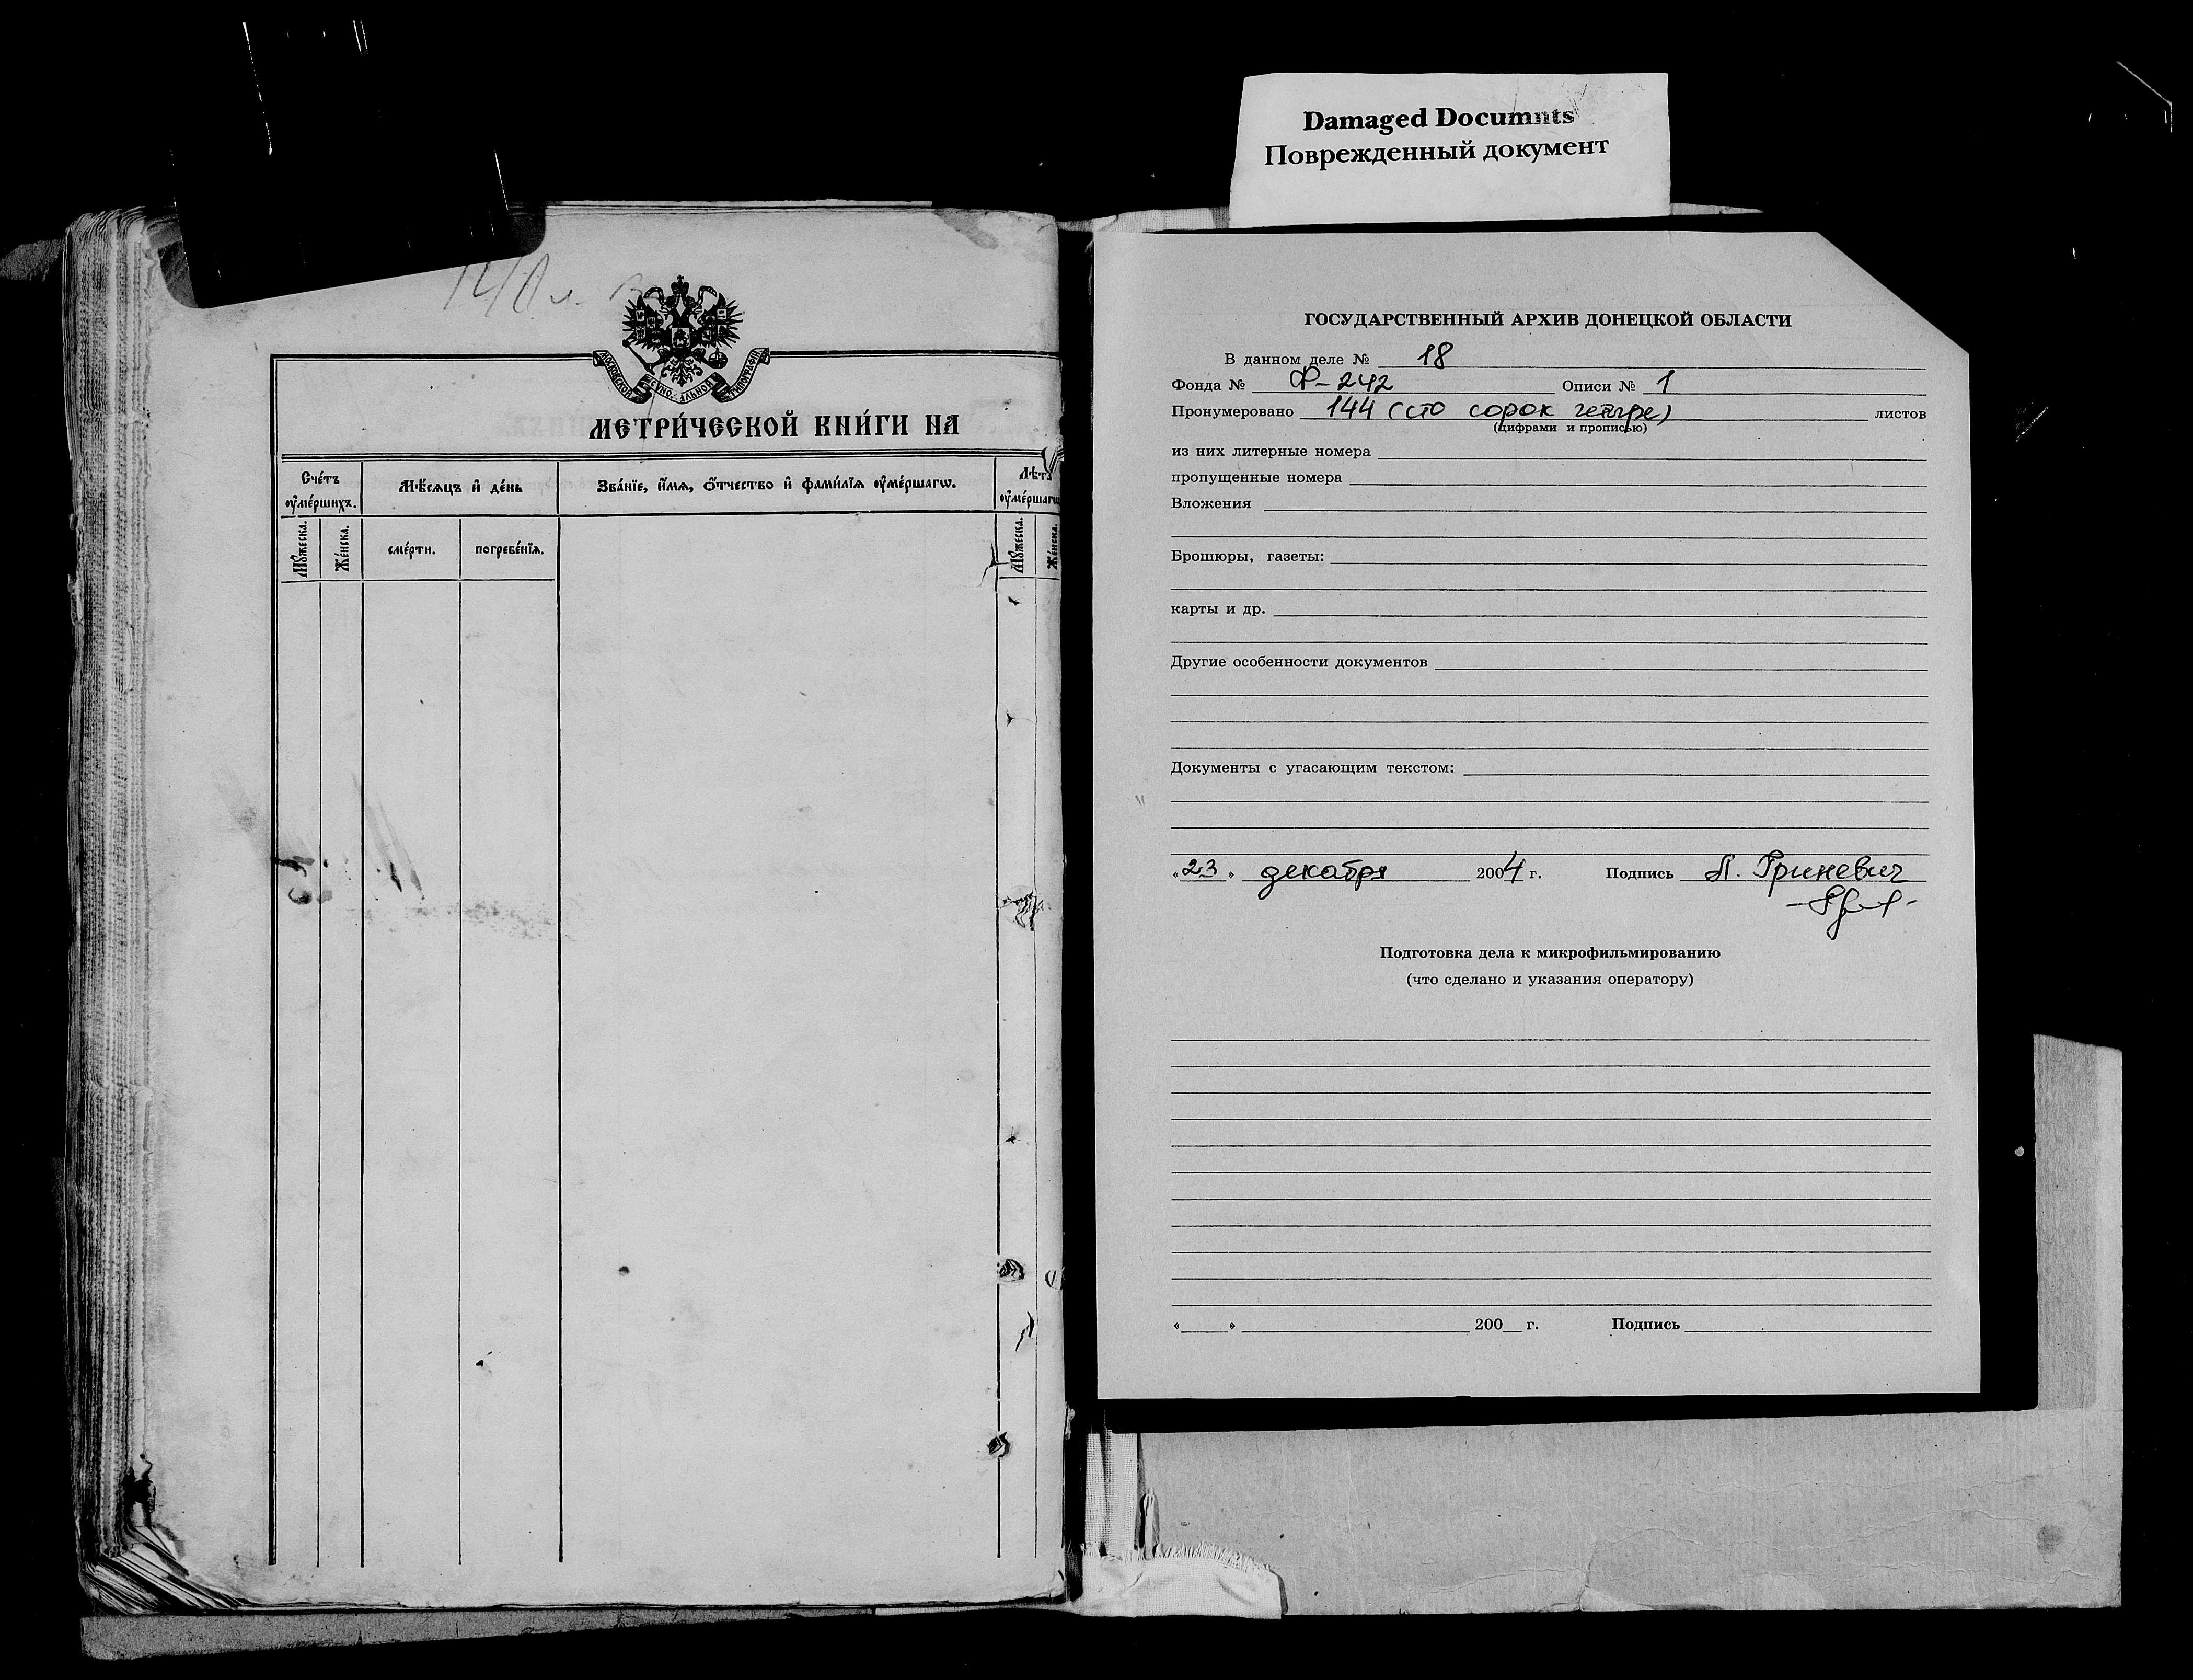 Damaged Documnts
Поврежденный документ
МОСКОВСКОЙ СѴНОДАЛЬНОЙ ТИПОГРАФІИ
МЕТРИ́ЧЕСКОЙ КНИ́ГИ НА
Сче́тъ ᲂу҆ме́ршихъ.
Мѣ́сѧцъ и҆ де́нь
Зва́нїе, и҆́мѧ, ѻ҆́тчество и҆ фами́лїѧ ᲂу҆ме́ршагѡ.
Лѣ́тъ ᲂу҆ме́ршагѡ
Мꙋ́жеска.
Же́нска.
сме́рти.
погребе́нїѧ.
Мꙋ́жеска.
Же́нска.
ГОСУДАРСТВЕННЫЙ АРХИВ ДОНЕЦКОЙ ОБЛАСТИ
В данном деле № 18
Фонда № Ф-242 Описи № 1
Пронумеровано 144 (сто сорок четыре) листов
(цифрами и прописью)
из них литерные номера
пропущенные номера
Вложения
Брошюры, газеты:
карты и др.
Другие особенности документов
Документы с угасающим текстом:
«23» декабря 2004 г. Подпись Л. Гриневич
Подготовка дела к микрофильмированию
(что сделано и указания оператору)
«    » 200   г. Подпись